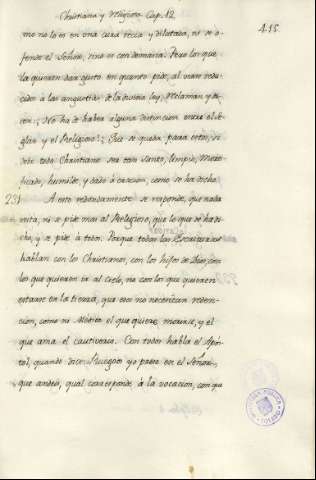 Christiana y Religioso Cap. 12.
415
mo no lo es en una cura seca y dilatada, ni se o-
fende el Señor, sino es con demasia. Pero los que
la quieren dar gusto en quanto pide, al verse redu-
cidos à las angustias de la divina ley, reclaman y di-
cen: No ha de haber alguna distincion entre el Se-
glar y el Religioso? Que se queda para estos, si
debe todo Christiano ser tan santo, limpio, Morti-
ficado, humilde, y dado à oracion, como se ha dicho?
231 A esto redondamente se responde, que nada
resta, ni se pide mas al Religioso, que lo que se ha di-
cho, y se pide à todos. Porque todas las Escrituras
hablan con los Christianos, con los hijos de Dios, con
los que quieren ir al cielo, no con los que quieren
estarse en la tierra, que eso no necesitan reden-
cion, como ni Medico el que quiere morirse, y el
que ama el cautiverio. Con todos habla el Após-
tol, quando dice: Ruegoos yo preso en el Señor,
que andeis, qual corresponde à la vocacion, con que
BIBLIOTECA PUBLICA
TOLEDO